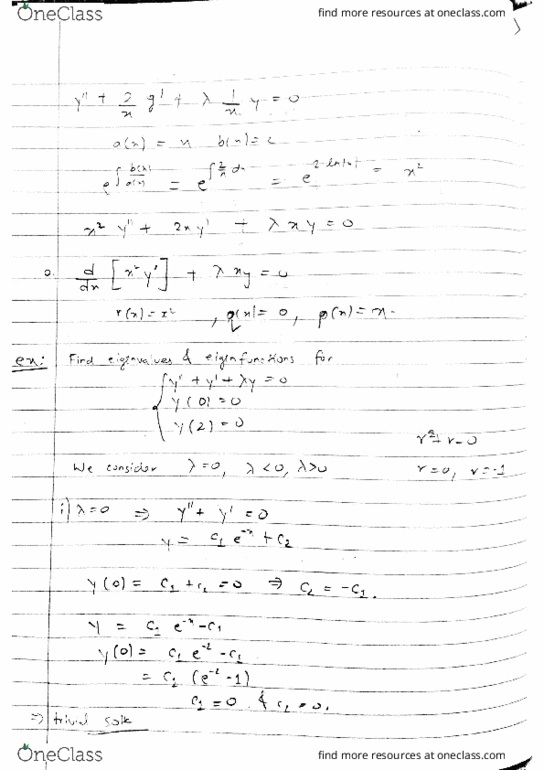 OneClass find more resources at oneclass.com
y'' + 2/x y' + λ 1/x y = 0
a(x) = x b(x) = 2
e^∫ b(x)/a(x) = e^∫ 2/x dx = e^2 ln|x| = x²
x² y'' + 2x y' + λ x y = 0
d/dx [x² y'] + λ x y = 0
r(x) = x², q(x) = 0, p(x) = x.
ex: Find eigenvalues & eigenfunctions for
y'' + y' + λy = 0
y(0) = 0
y(2) = 0
r² + r = 0
We consider λ=0, λ<0, λ>0 r=0, r=-1
i) λ=0 ⇒ y'' + y' = 0
y = c₁ e^-x + c₂
y(0) = c₁ + c₂ = 0 ⇒ c₂ = -c₁.
y = c₁ e^-x - c₁
y(0) = c₁ e^-2 - c₁
= c₁ (e^-2 - 1)
c₁ = 0 & c₂ = 0.
⇒ trivial soln
OneClass find more resources at oneclass.com